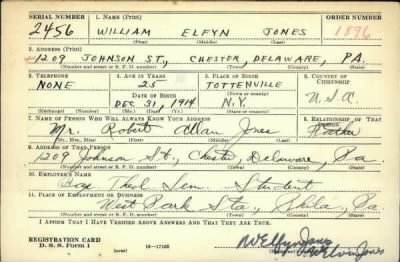 SERIAL NUMBER 1. NAME (Print) ORDER NUMBER
2456 WILLIAM ELFYN JONES 1896
(First) (Middle) (Last)
2. ADDRESS (Print)
1209 JOHNSON ST., CHESTER, DELAWARE, PA.
(Number and street or R. F. D. number) (Town) (County) (State)
3. TELEPHONE 4. AGE IN YEARS 5. PLACE OF BIRTH 6. COUNTRY OF CITIZENSHIP
NONE 25 TOTTENVILLE
DATE OF BIRTH (Town or county)
DEC 31, 1914 N.Y. U.S.A.
(Exchange) (Number) (Mo.) (Day) (Yr.) (State or country)
7. NAME OF PERSON WHO WILL ALWAYS KNOW YOUR ADDRESS 8. RELATIONSHIP OF THAT PERSON
Mr. Robert Allan Jones Father
(Mr., Mrs., Miss) (First) (Middle) (Last)
9. ADDRESS OF THAT PERSON
1209 Johnson St., Chester, Delaware, Pa
(Number and street or R. F. D. number) (Town) (County) (State)
10. EMPLOYER'S NAME
Theol Sem. Student
11. PLACE OF EMPLOYMENT OR BUSINESS
West Park Sta., Phila, Pa
(Number and street or R. F. D. number) (Town) (County) (State)
I AFFIRM THAT I HAVE VERIFIED ABOVE ANSWERS AND THAT THEY ARE TRUE.
REGISTRATION CARD
D. S. S. Form 1 (over) 16—17105